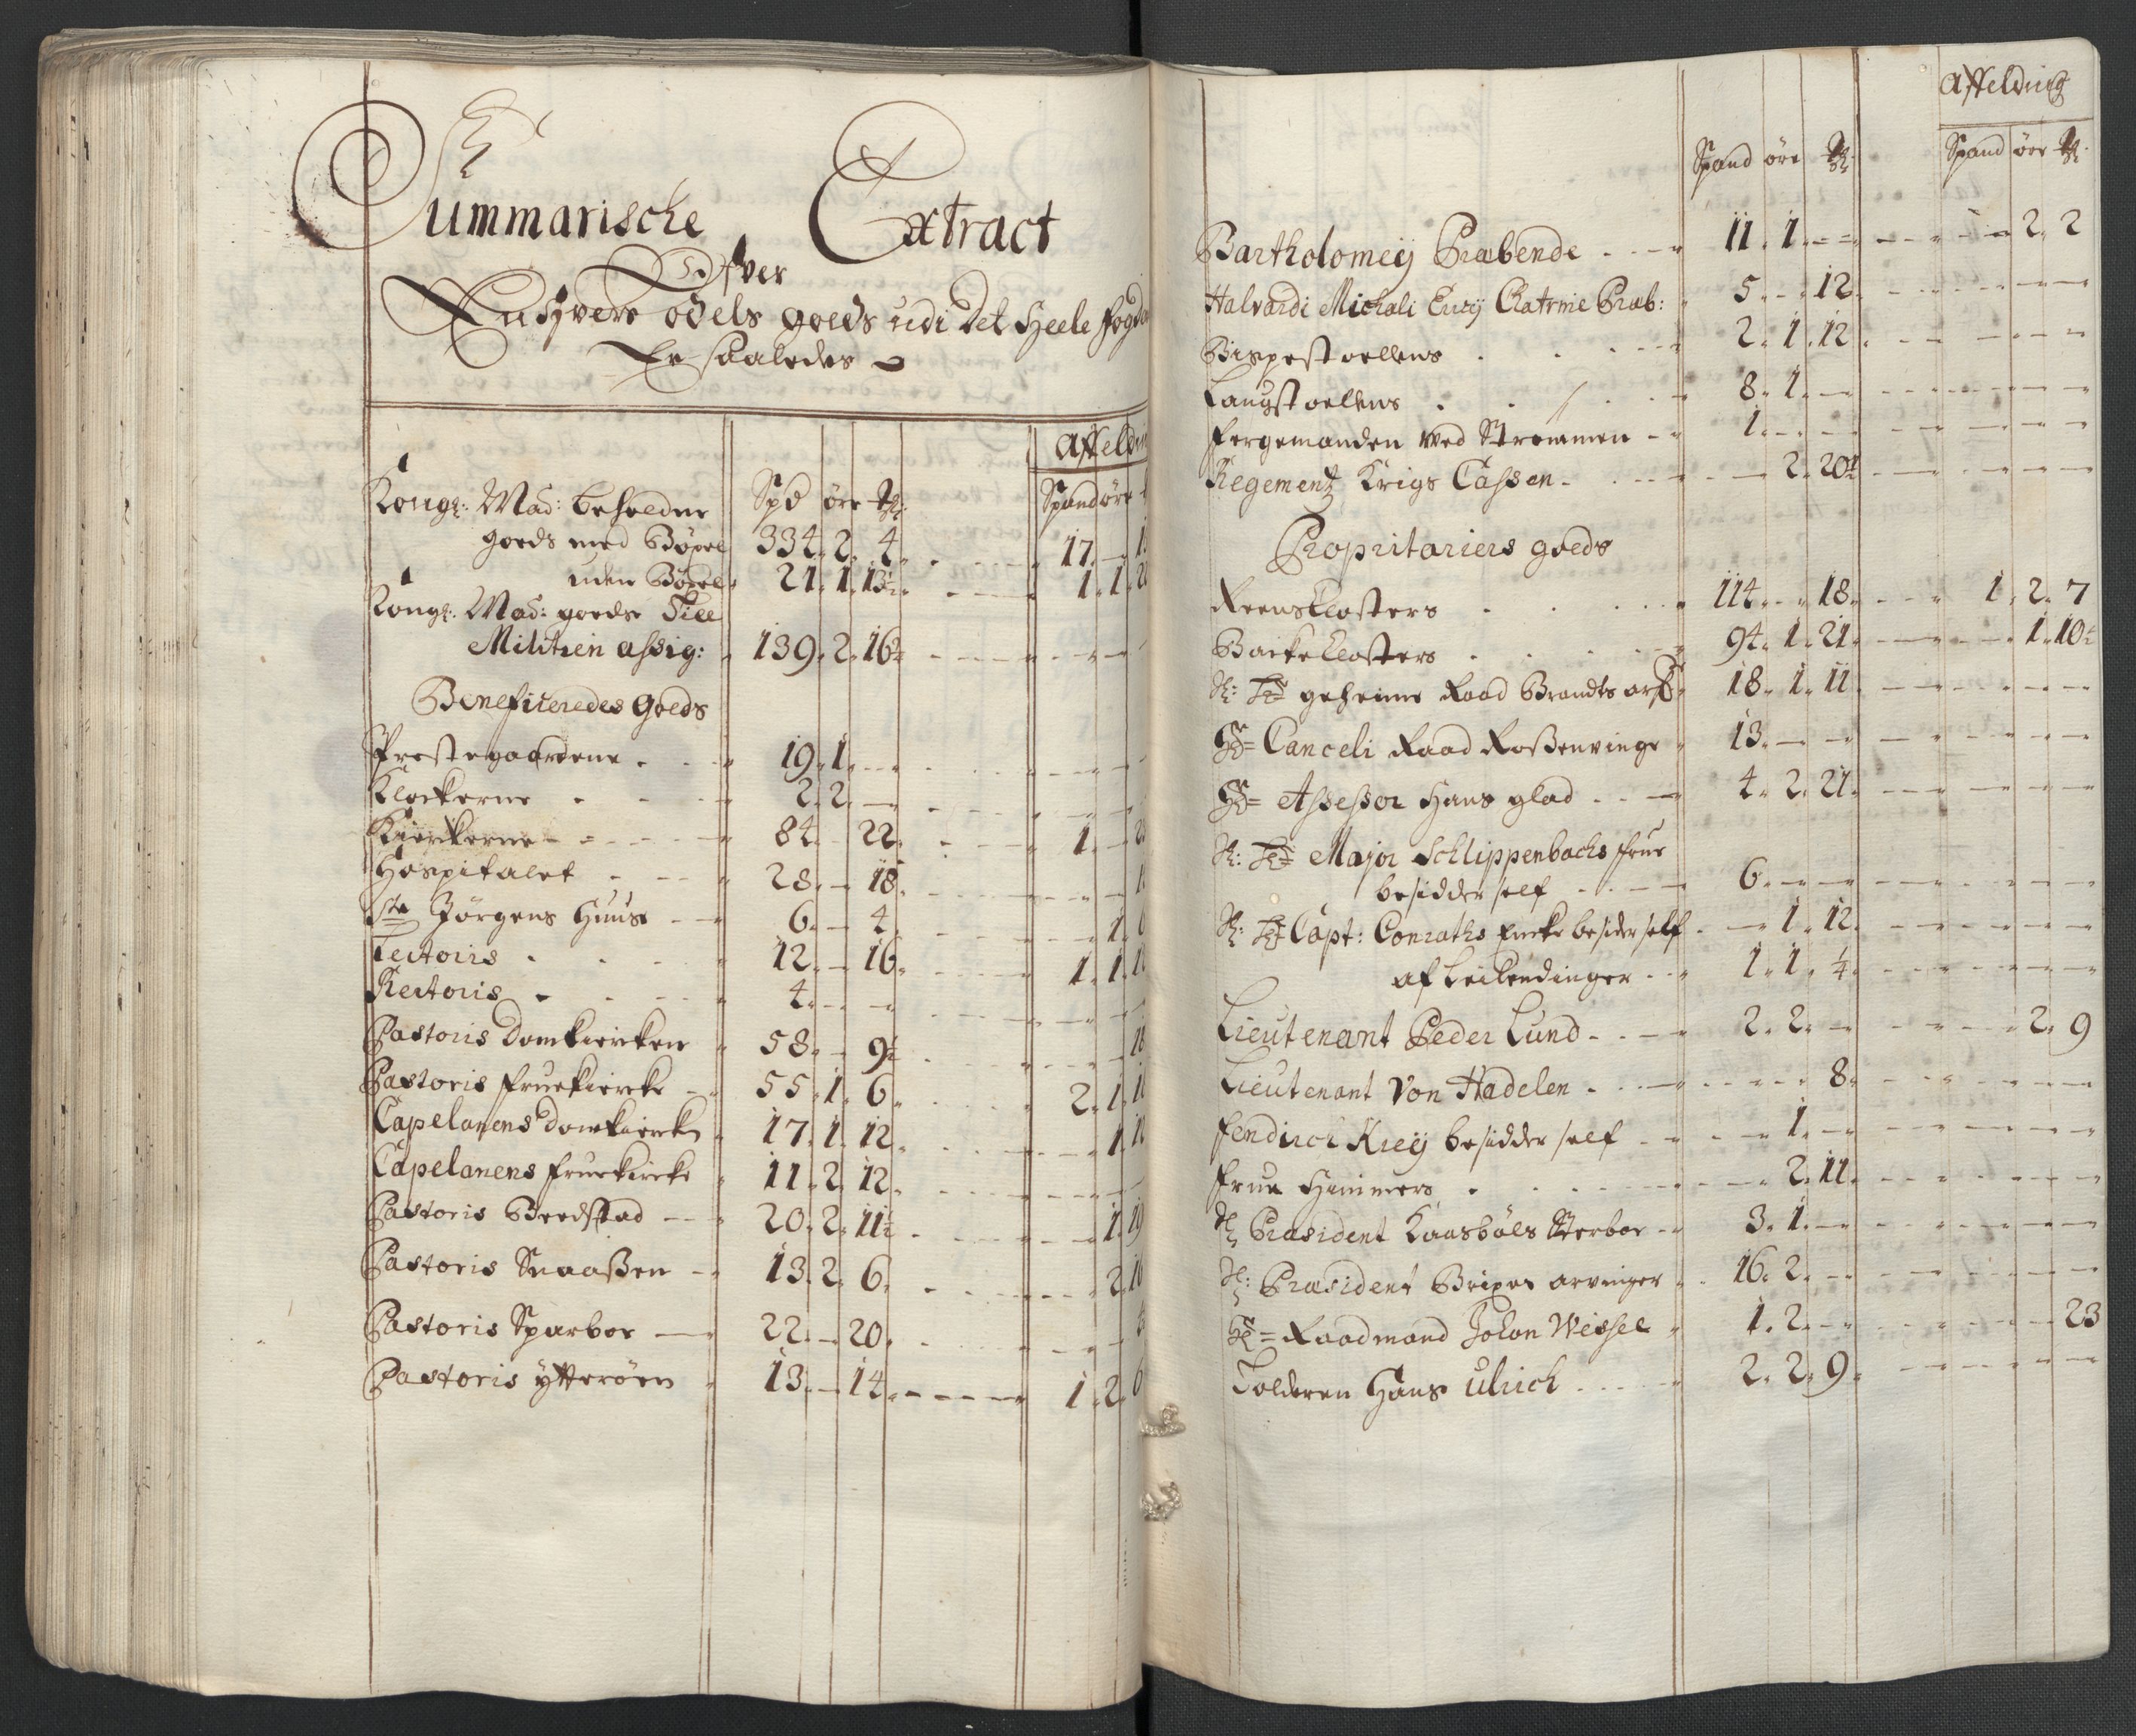 Summarische Extract
Ofver
Endhvers odels goeds udi det Heele fogd
Er saaledes
Affeld
Spd öre Spand öre
Kongl: May: beholdne
goeds med Böxel 334. 2. 4. 17.
uden Böxel 21. 1. 13½ 1. 1.
Kongl: May: goeds Till
Militien assig: 139. 2. 16½
Beneficeredes goeds
Prestegaardene 19. 1.
Klockerne 2. 2.
Kierkerne 84. 22. 1.
Hospitalet 28. 18.
Ste Jörgens Huus 6. 4. 1.
Lectoris 12. 16. 1. 1.
Rectoris 4.
Pastoris Domkiercken 58. 9½
Pastoris fruekiercke 55. 1. 6. 2. 1.
Capelanens Domkierck 17. 1. 12. 1.
Capelanens fruekircke 11. 2. 12.
Pastoris Beedstad 20. 2. 11½ 1. 19
Pastoris Snaaßen 13. 2. 6. 2.
Pastoris Sparboe 22. 20.
Pastoris ytteröen 13. 14. 1. 2.
Affelding
Spand öre Spand öre
Bartholomeij Præbende 11. 1. 2. 2
Halvardi Michali Catrine Præb: 5. 12.
Bispestoellens 2. 1. 12.
Laugstoellens 8. 1.
fergemanden ved Strömmen 1.
Regementz Krigs Cassen 2. 20¼
Propritariers goeds
Reensklosters 114. 18. 1. 2. 7
Backe klosters 94. 1. 21. 1. 10½
Sl: Hr geheime Raad Brandts arf 18. 1. 11.
Hr Canceli Raad Roßenvinge 13.
Hr Assessor Hans glad 4. 2. 21.
Sl: Hr Major Schlippenbachs frue
besidder self 6.
Sl: Hr Capt: Conraths Encke besider self 1. 12.
af Leilendinger 1. 1. ¼
Lieutenant Peder Lund 2. 2. 2. 9
Lieutenant Von Hadelen 8.
fendirch Kreij besidder self 1.
frue Himmers 2. 11.
Sl: Præsident Kaasböls Sterboe 3. 1.
Sl: Præsident Brixes arvinger 16. 2.
Hr Raadmand Johan Wessel 1. 2. 23
Tolderen Hans Ulrich 2. 2. 9.